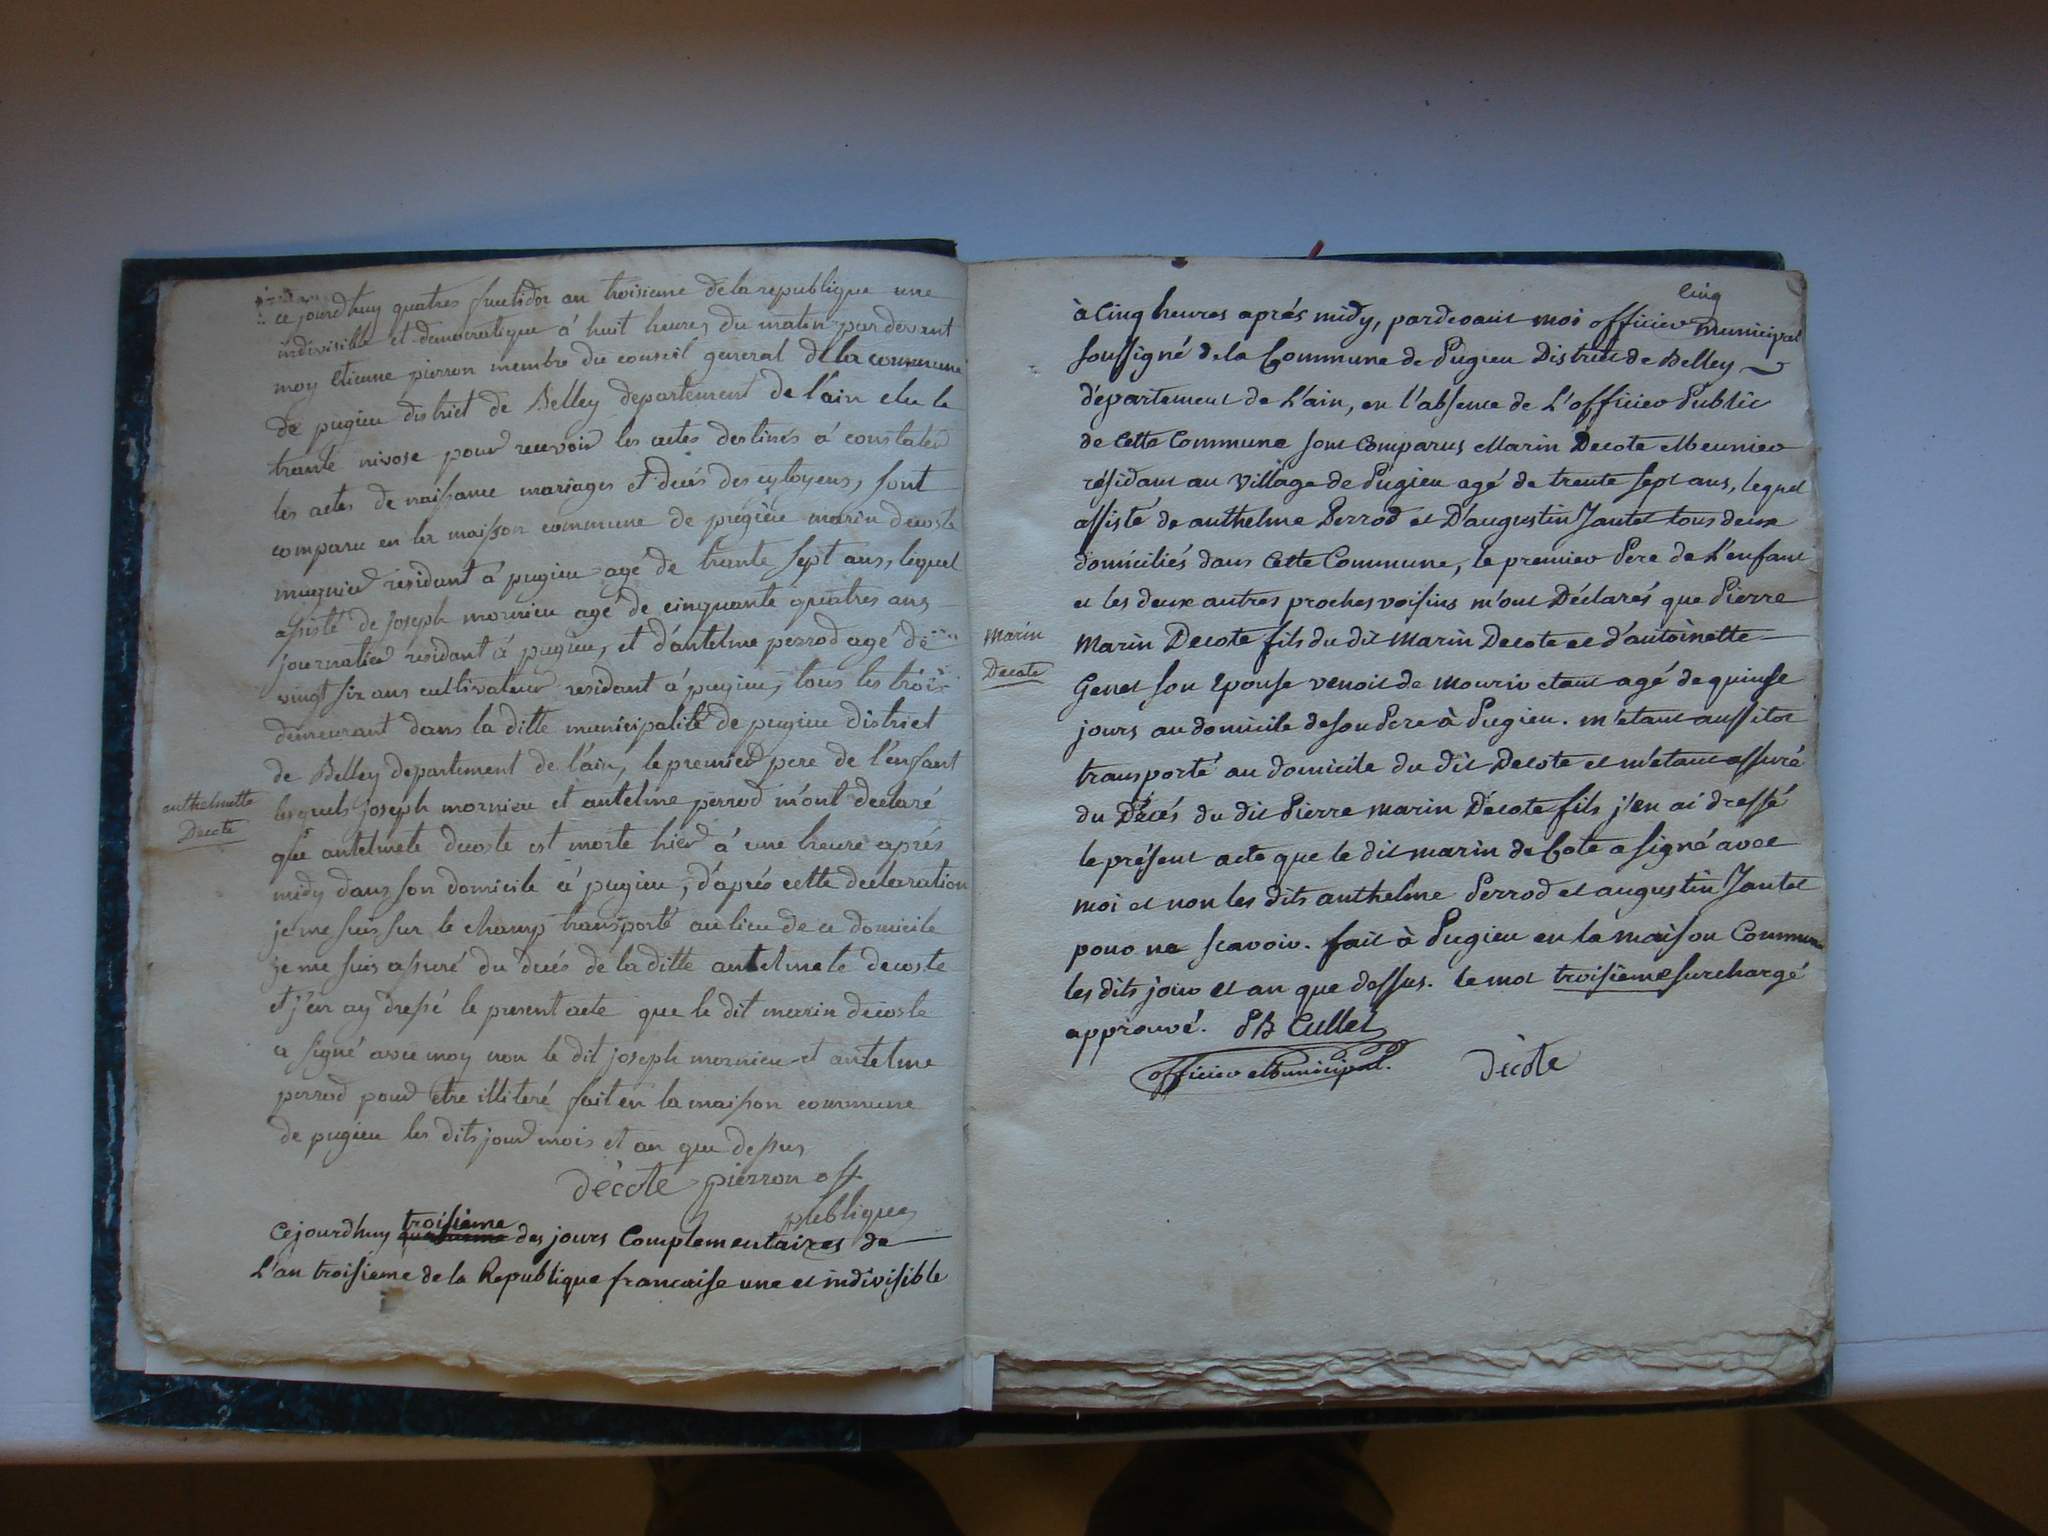 ce jourdhuy quatres fructidor an troisieme de la republique une
indivisible et democratique á huit heures du matin par devant
moy Etienne pierron membre du conseil general de la commune
de pugieu district de Belley departement de l'ain elu le
trante nivose pour recevoir les actes destinés á constater
les actes de naissance mariages et decés des cytoyens, sont
comparu en la maisson commune de pugieu marin decoste
mugnier residant á pugieu agé de trante sept ans, lequel
assisté de joseph mornieu agé de cinquante quatres ans
journalier residant á pugieu, et d'antelme perrod agé de
vingt six ans cultivateur residant á pugieu, tous les trois
demeurant dans la ditte municipalité de pugieu district
de Belley departement de l'ain, le premier pere de l'enfant
anthelmette
Decote
lesquels joseph mornieu et antelme perrod m'ont declaré
que antelmete decoste est morte hier á une heure aprés
midy dans son domicile á pugieu, d'aprés cette declaration
je me suis sur le champ transporté au lieu de ce domicile
je me suis assuré du decés de la ditte antelmete decoste
et j'en ay dressé le present acte que le dit marin decoste
a signé avec moy non le dit joseph mornieu et antelme
perrod pour etre illiteré fait en la maisson commune
de pugieu les dits jour mois et an que dessus
décote pierron off
publique
troisième
Cejourdhuy des jours Complementaires de
L'an troisieme de la Republique francaise une et indivisible
Cinq
à Cinq heures aprés midy, pardevant moi officier municipal
soussigné de la Commune de Pugieu District de Belley
département de L'ain, en l'absence de L'officier Public
de Cette Commune sont Comparus Marin Decote Meunier
résidant au Village de Pugieu agé de trente sept ans, lequel
assisté de anthelme Perrod et D'augustin Jantet tous deux
domiciliés dans Cette Commune, le premier Pere de L'enfant
et les deux autres proches voisins m'ont Déclarés que Pierre
Marin
Decote
Marin Decote fils du dit Marin Decote et d'antoinette
Genet son Epouse venoit de mourir etant agé de quinse
jours au domicile de son Pere à Pugieu. m'etant aussitot
transporté au domicile du dit Decote et m'etant assuré
du Décés du dit Pierre Marin Décote fils j'en ai dressé
le présent acte que le dit marin de Cote a signé avec
moi et non les dits anthelme Perrod et augustin Jantet
pour ne scavoir. fait à Pugieu en la maison Commune
les dits jour et an que dessus. le mot troisième surchargé
approuvé. PB Cullet
officier Municipal. décote